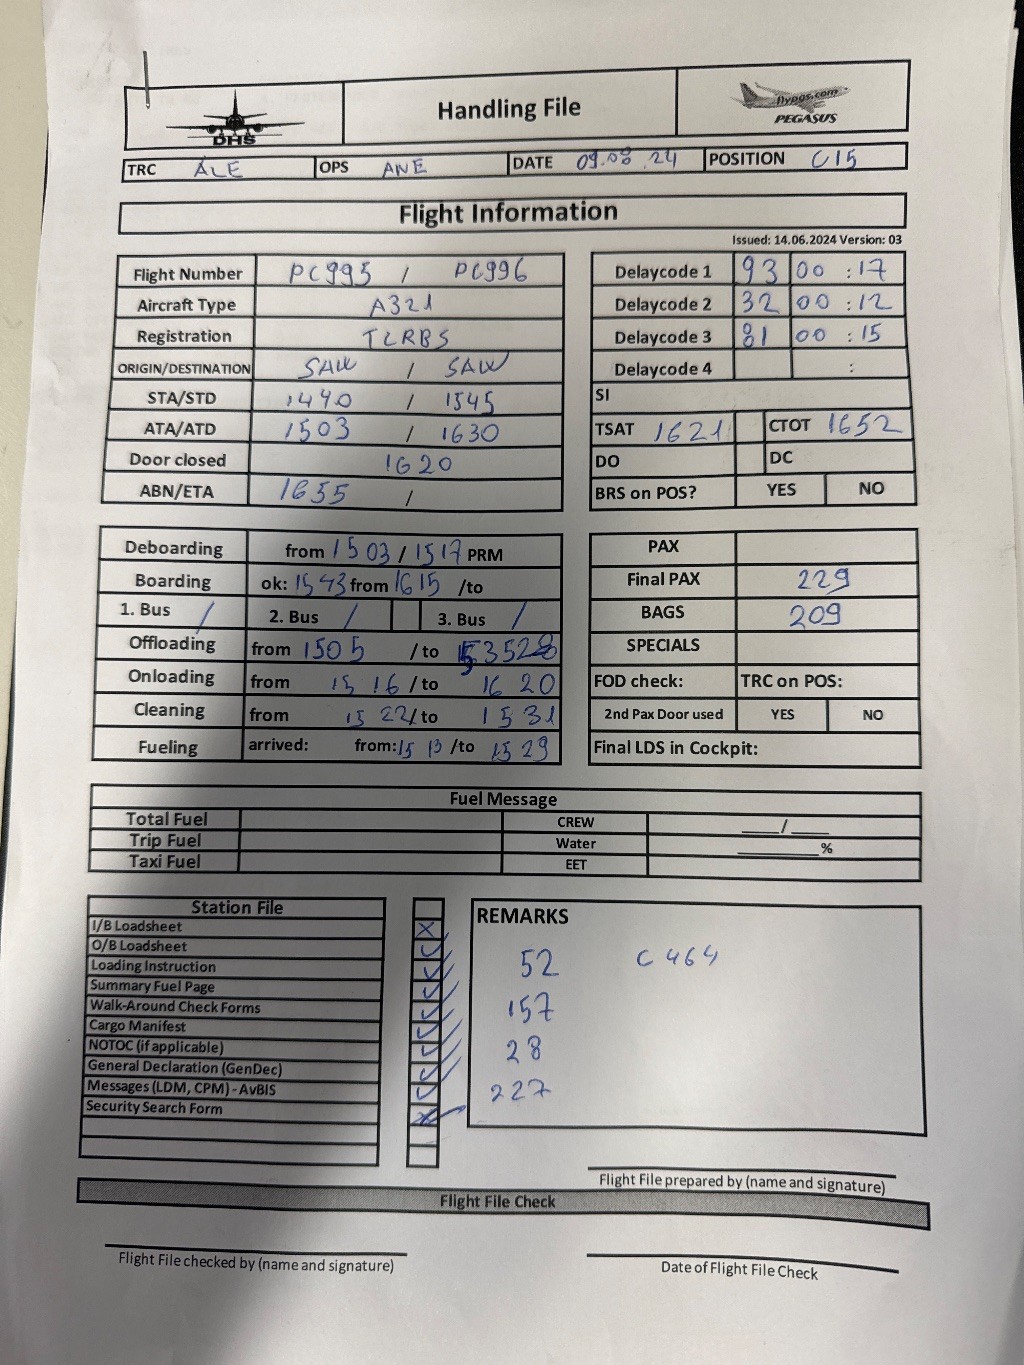 DHS
Handling File
flypgs.com
PEGASUS
TRC ALE OPS ANE DATE 09.08.24 POSITION C15
Flight Information
Issued: 14.06.2024 Version: 03
Flight Number PC995 / PC996
Aircraft Type A321
Registration TCRBS
ORIGIN/DESTINATION SAW / SAW
STA/STD 1440 / 1545
ATA/ATD 1503 / 1630
Door closed 1620
ABN/ETA 1655 /
Delaycode 1 93 00 : 17
Delaycode 2 32 00 : 12
Delaycode 3 81 00 : 15
Delaycode 4 :
SI
TSAT 1621 CTOT 1652
DO DC
BRS on POS? YES NO
Deboarding from 1503 / 1517 PRM
Boarding ok: 1543 from 1615 /to
1. Bus / 2. Bus / 3. Bus /
Offloading from 1505 /to
Onloading from 1516 /to 1620
Cleaning from 1522 /to 1531
Fueling arrived: from: 1513 /to 1529
PAX
Final PAX 229
BAGS 209
SPECIALS
FOD check: TRC on POS:
2nd Pax Door used YES NO
Final LDS in Cockpit:
Fuel Message
Total Fuel CREW ___/___
Trip Fuel Water ______%
Taxi Fuel EET
Station File
I/B Loadsheet
O/B Loadsheet
Loading Instruction
Summary Fuel Page
Walk-Around Check Forms
Cargo Manifest
NOTOC (if applicable)
General Declaration (GenDec)
Messages (LDM, CPM) - AvBIS
Security Search Form
REMARKS
52 C464
157
28
227
Flight File prepared by (name and signature)
Flight File Check
Flight File checked by (name and signature)
Date of Flight File Check